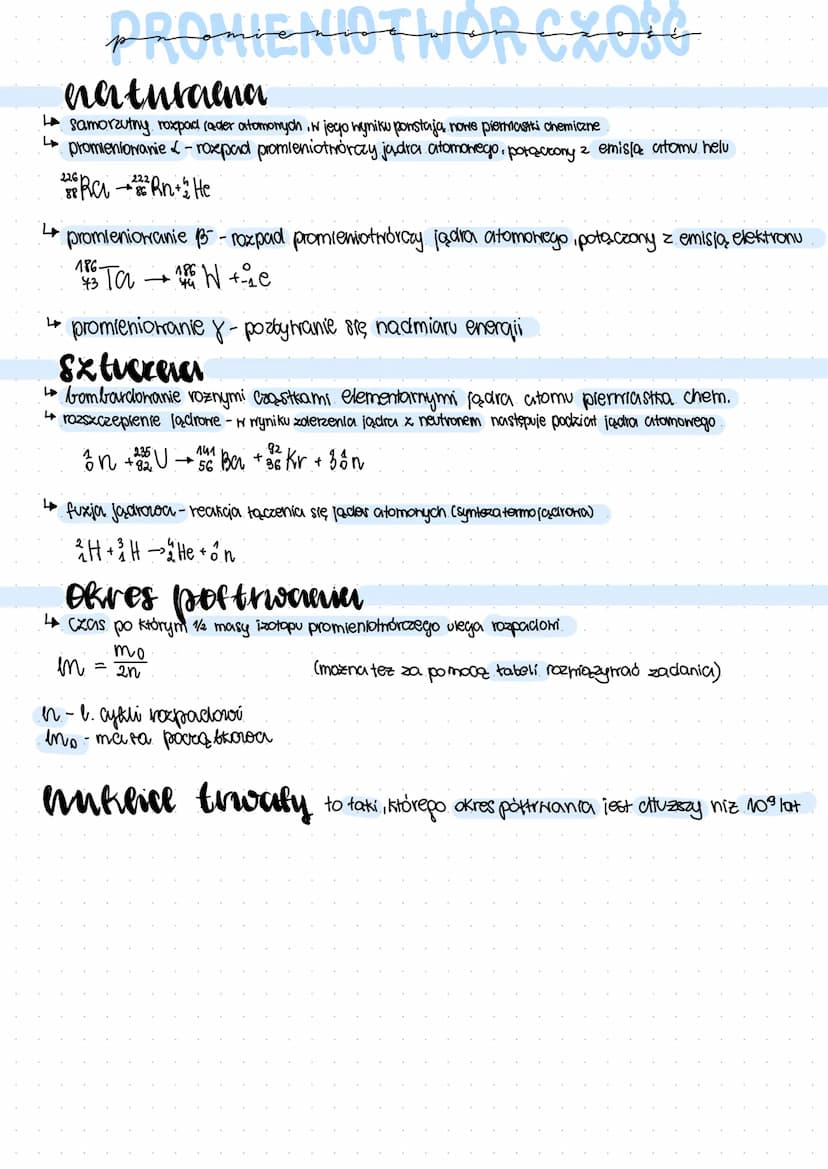 PROMIENIOTWÓRCZOŚĆ
promieniotwórczość
naturalna
↳ samorzutny rozpad jąder atomowych, w jego wyniku powstają nowe pierwiastki chemiczne
↳ promieniowanie α - rozpad promieniotwórczy jądra atomowego, połączony z emisją atomu helu
²²⁶₈₈Ra → ²²²₈₆Rn + ⁴₂He
↳ promieniowanie β⁻ - rozpad promieniotwórczy jądra atomowego, połączony z emisją elektronu
¹⁸⁶₇₃Ta → ¹⁸⁶₇₄W + ⁰₋₁e
↳ promieniowanie γ - pozbywanie się nadmiaru energii
sztuczna
↳ bombardowanie roznymi cząstkami elementarnymi jądra atomu pierwiastka chem.
↳ rozszczepienie jądrowe - w wyniku zderzenia jądra z neutronem następuje podział jądra atomowego
¹₀n + ²³⁵₈₂U → ¹⁴¹₅₆Ba + ⁹²₃₆Kr + 3¹₀n
↳ fuzja jądrowa - reakcja łączenia się jąder atomowych (synteza termojądrowa)
²₁H + ³₁H → ⁴₂He + ¹₀n
okres połtrwania
↳ czas po którym 1/2 masy izotopu promieniotwórczego ulega rozpadowi
m = m₀/2n
(mozna tez za pomocą tabeli rozwiązywać zadania)
n - l. cykli rozpadowi
m₀ - masa początkowa
nuklice trwały to taki, którego okres półtrwania jest dłuzszy niz 10⁹ lat